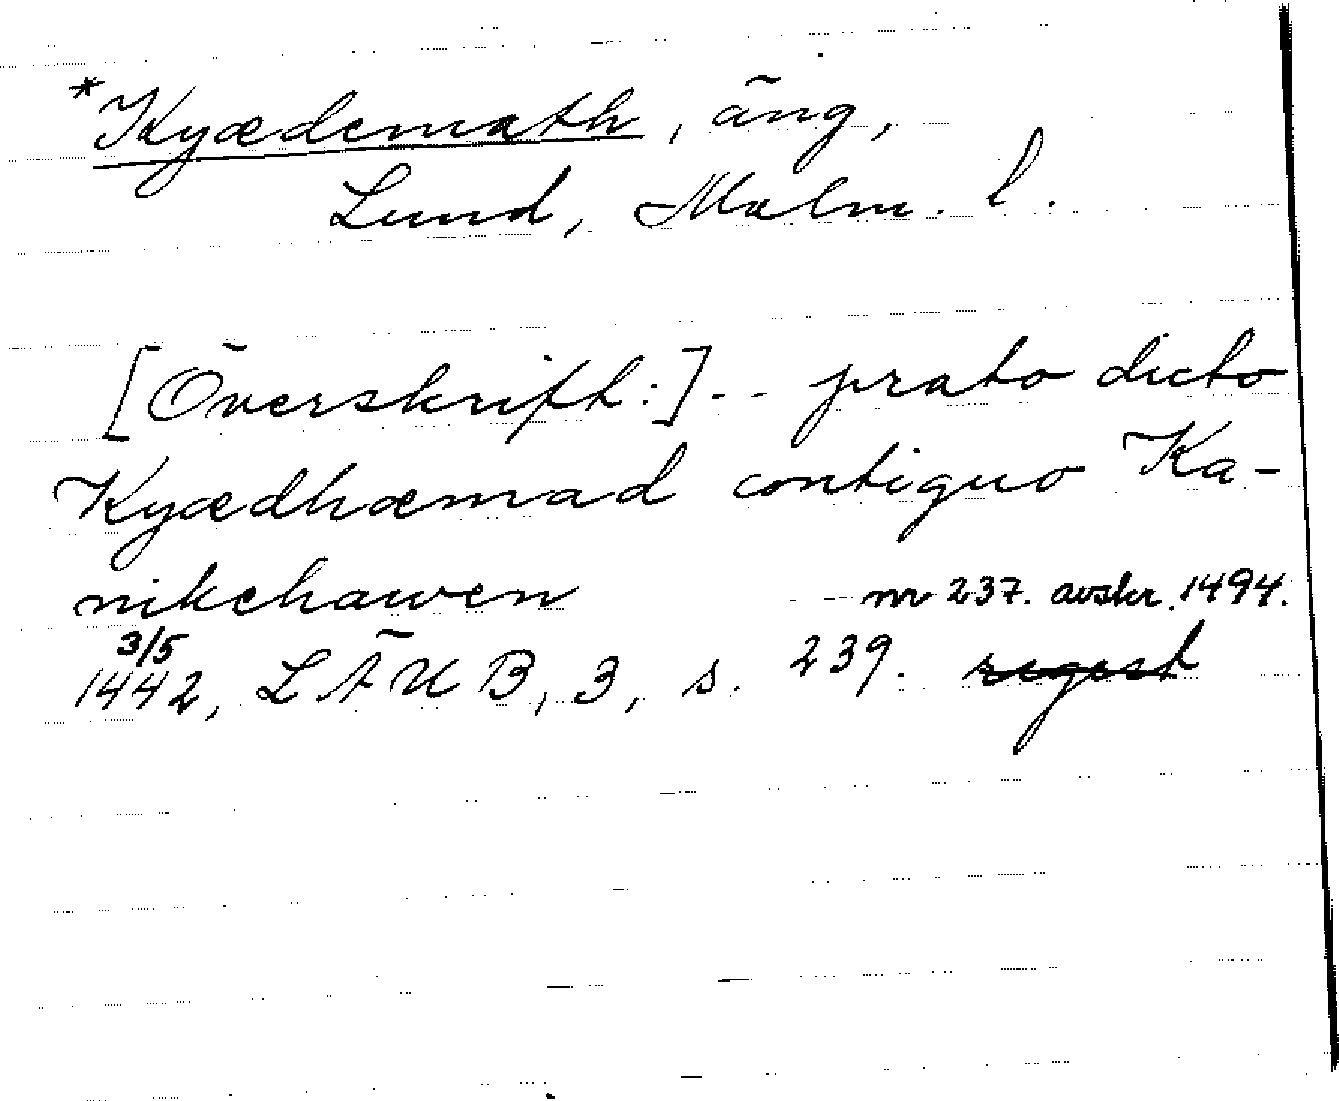 *Kyædemath, äng,
Lund, Malm. l.
[Överskrift:] - - prato dicto
Kyædhæmad contiguo Ka-
nikehawen
nr 237. avskr. 1494.
3/5
1442, LÄUB, 3, s. 239. regest